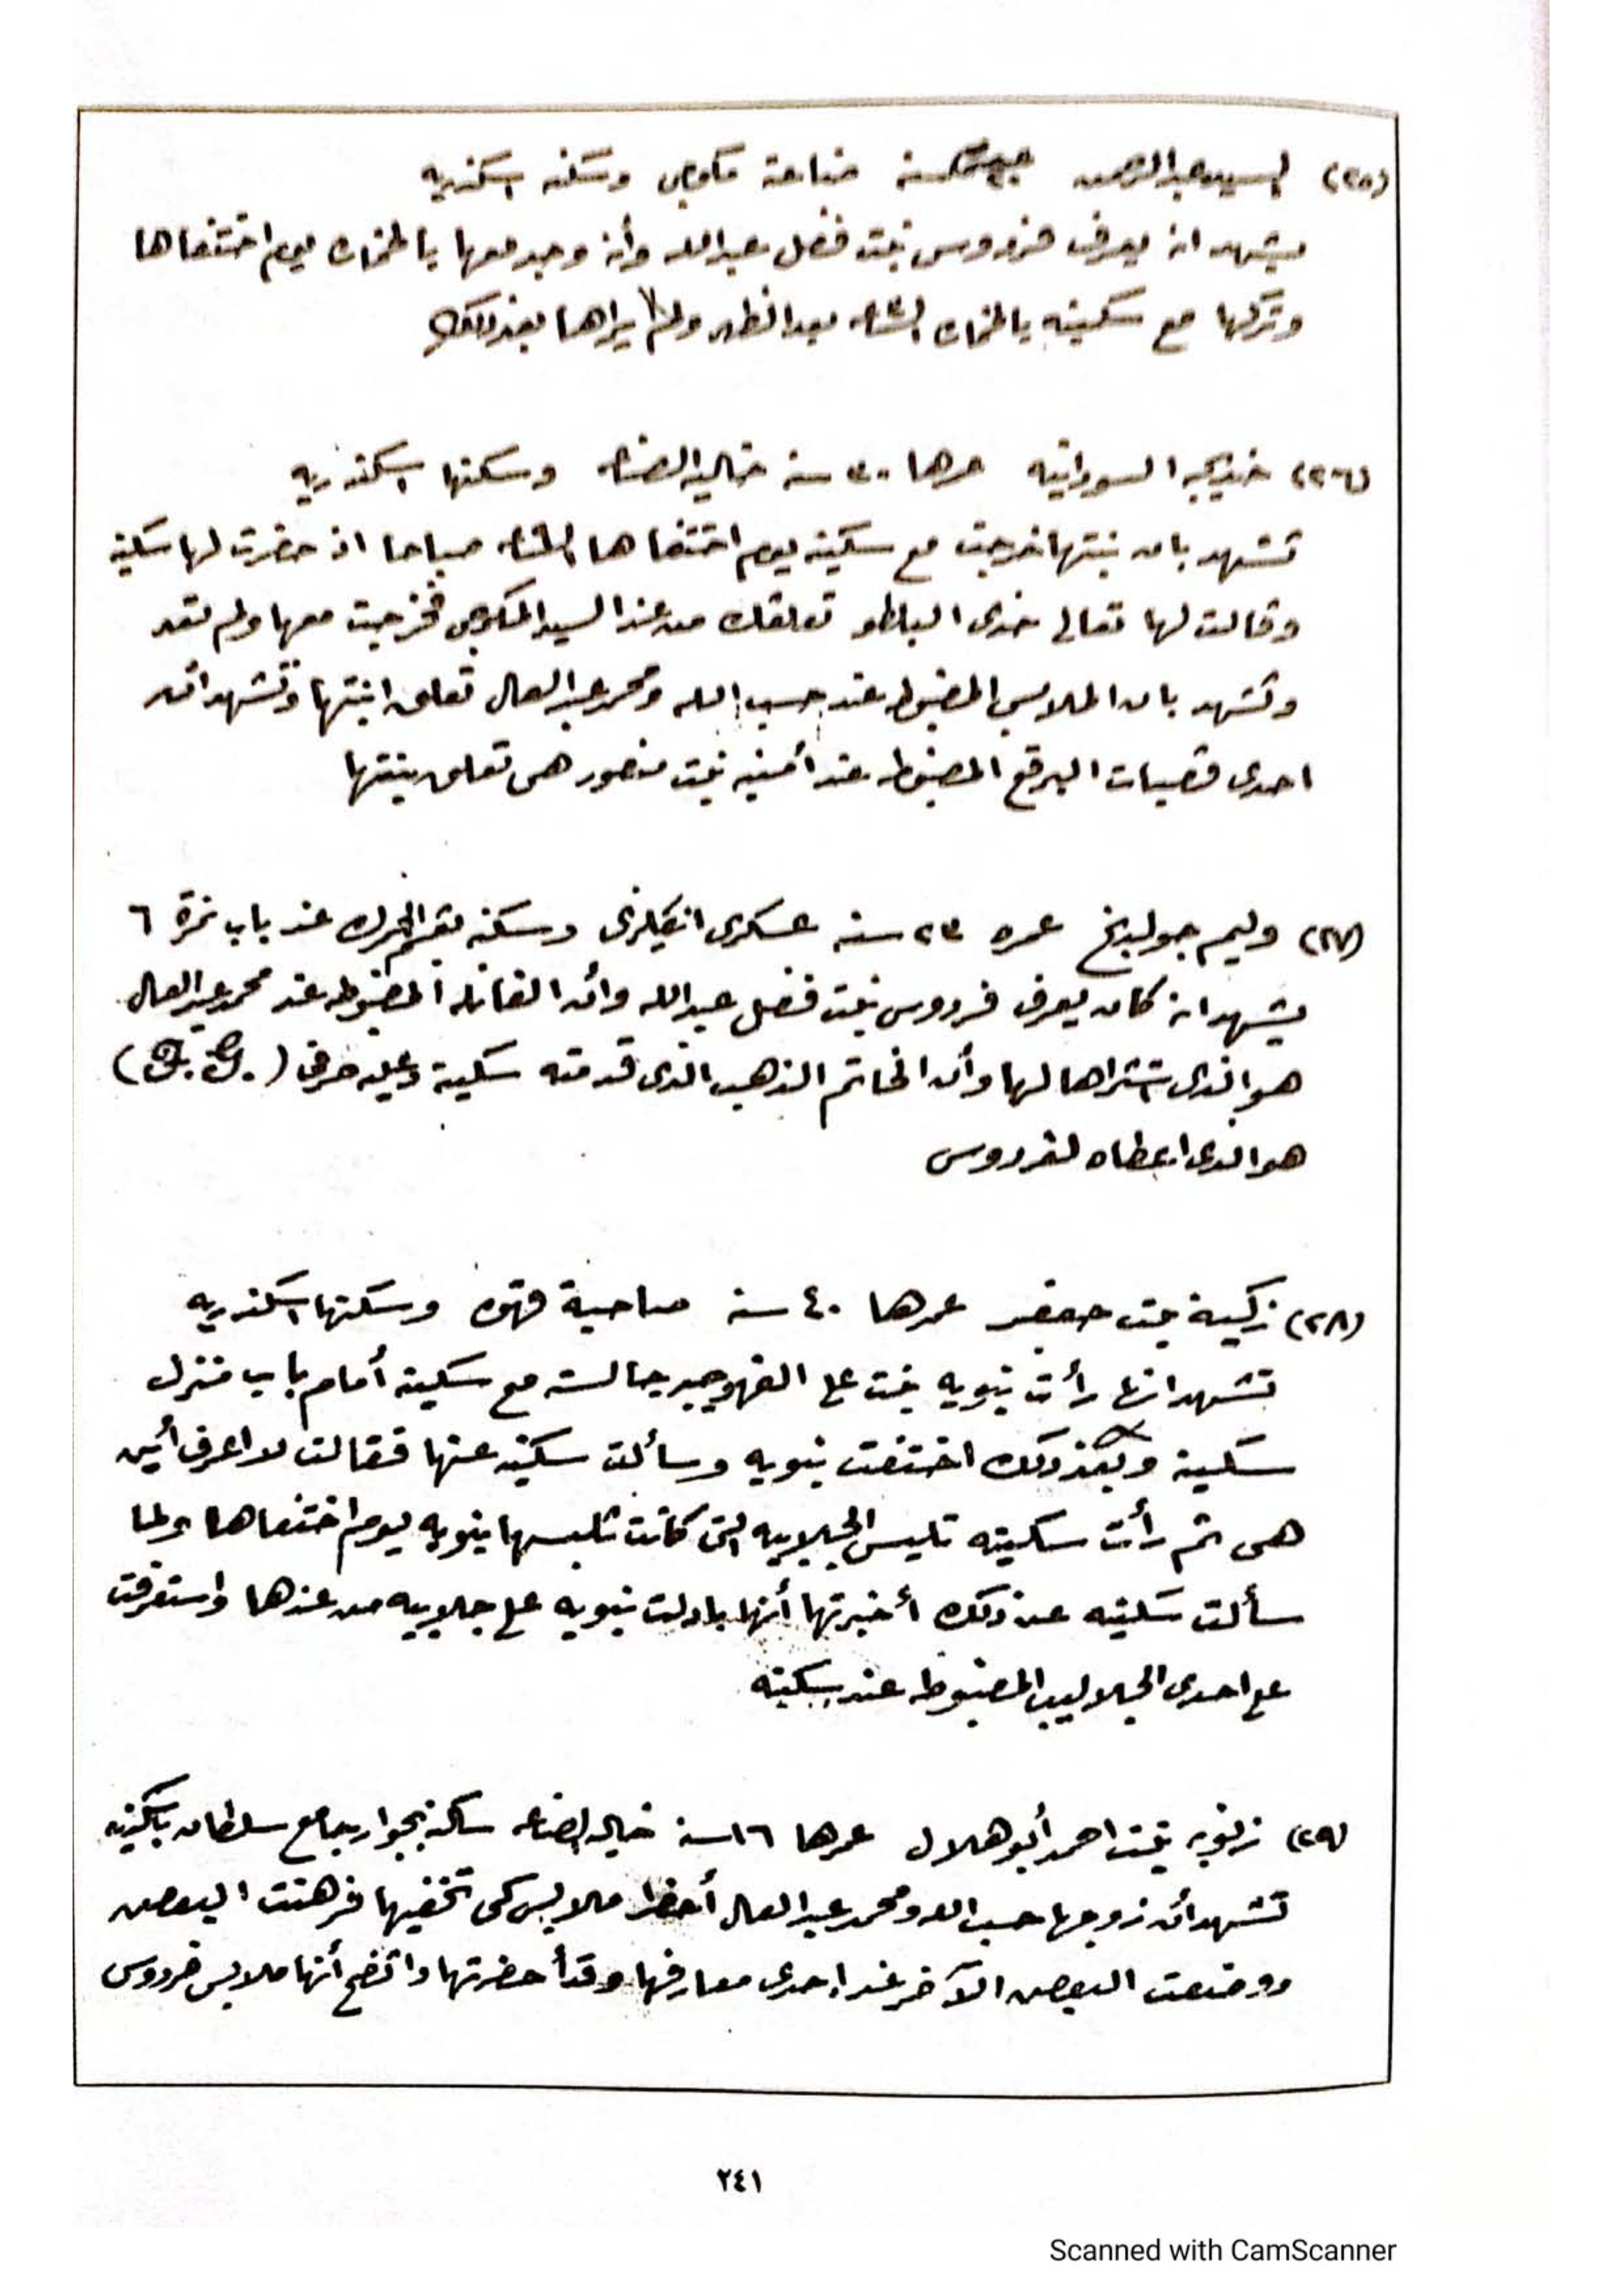 (٢٥) السيد عبد الرحمن سنة صناعته مكوجى وسكنه اسكندريه
يشهد انه يعرف فردوس بنت فضل عبد الله وأنه وجد معها بالخماره يوم اختفاها
وتركها مع سكينه بالخماره الساعه بعد الظهر ولم يراها بعد ذلك
(٢٦) خديجه السودانيه عمرها ٣٠ سنه خاليه الصناعه وسكنها اسكندريه
تشهد بان بنتها خرجت مع سكينه يوم اختفاها الساعه صباحا اذ حضرت لها سكينه
وقالت لها تعالى خدى البلطو تعلقك من عند السيد المكوجى فخرجت معها ولم تعد
وتشهد بان الملابس المضبوطه عند حسب الله ومحمد عبد العال تعلق ابنتها وتشهد ان
احدى قصبات البرقع المضبوطه عند أمنيه بنت منصور هى تعلق بنتها
(٢٧) وليم جولدنج عمره ٢٣ سنه عسكرى انكليزى وسكنه بقسم الجمرك عند باب نمرة ٦
يشهد انه كان يعرف فردوس بنت فضل عبد الله وأن الفانله المضبوطه عند محمد عبد العال
هو الذى اشتراها لها وأن الخاتم الذهب الذى قدمته سكينة وعليه حرفى
هو الذى اعطاه لفردوس
(٢٨) زكية بنت جعفر عمرها ٤٠ سنه صاحبة قهوه وسكنها اسكندريه
تشهد انها رأت نبويه بنت على القهوجيه جالسه مع سكينه أمام باب منزل
سكينة وبعد ذلك اختفت نبويه وسألت سكينه عنها فقالت لا اعرف أين
هى ثم رأت سكينه تلبس الجلابيه التى كانت تلبسها نبويه يوم اختفاها ولما
سألت سكينه عن ذلك أخبرتها أنها بادلت نبويه على جلابيه من عندها واستعرفت
على احدى الجلاليب المضبوطه عند سكينه
(٢٩) زنوبه بنت احمد أبو هلال عمرها ١٦ سنه خاليه الصناعه ساكنه بجوار جامع سلطان
تشهد أن زوجها حسب الله ومحمد عبد العال أحضرا ملابس كى تخفيها فرهنت البعض
ووضعت البعض الآخر عند احدى معارفها وقد أحضرتها واتضح أنها ملابس فردوس
٢٤١
Scanned with CamScanner